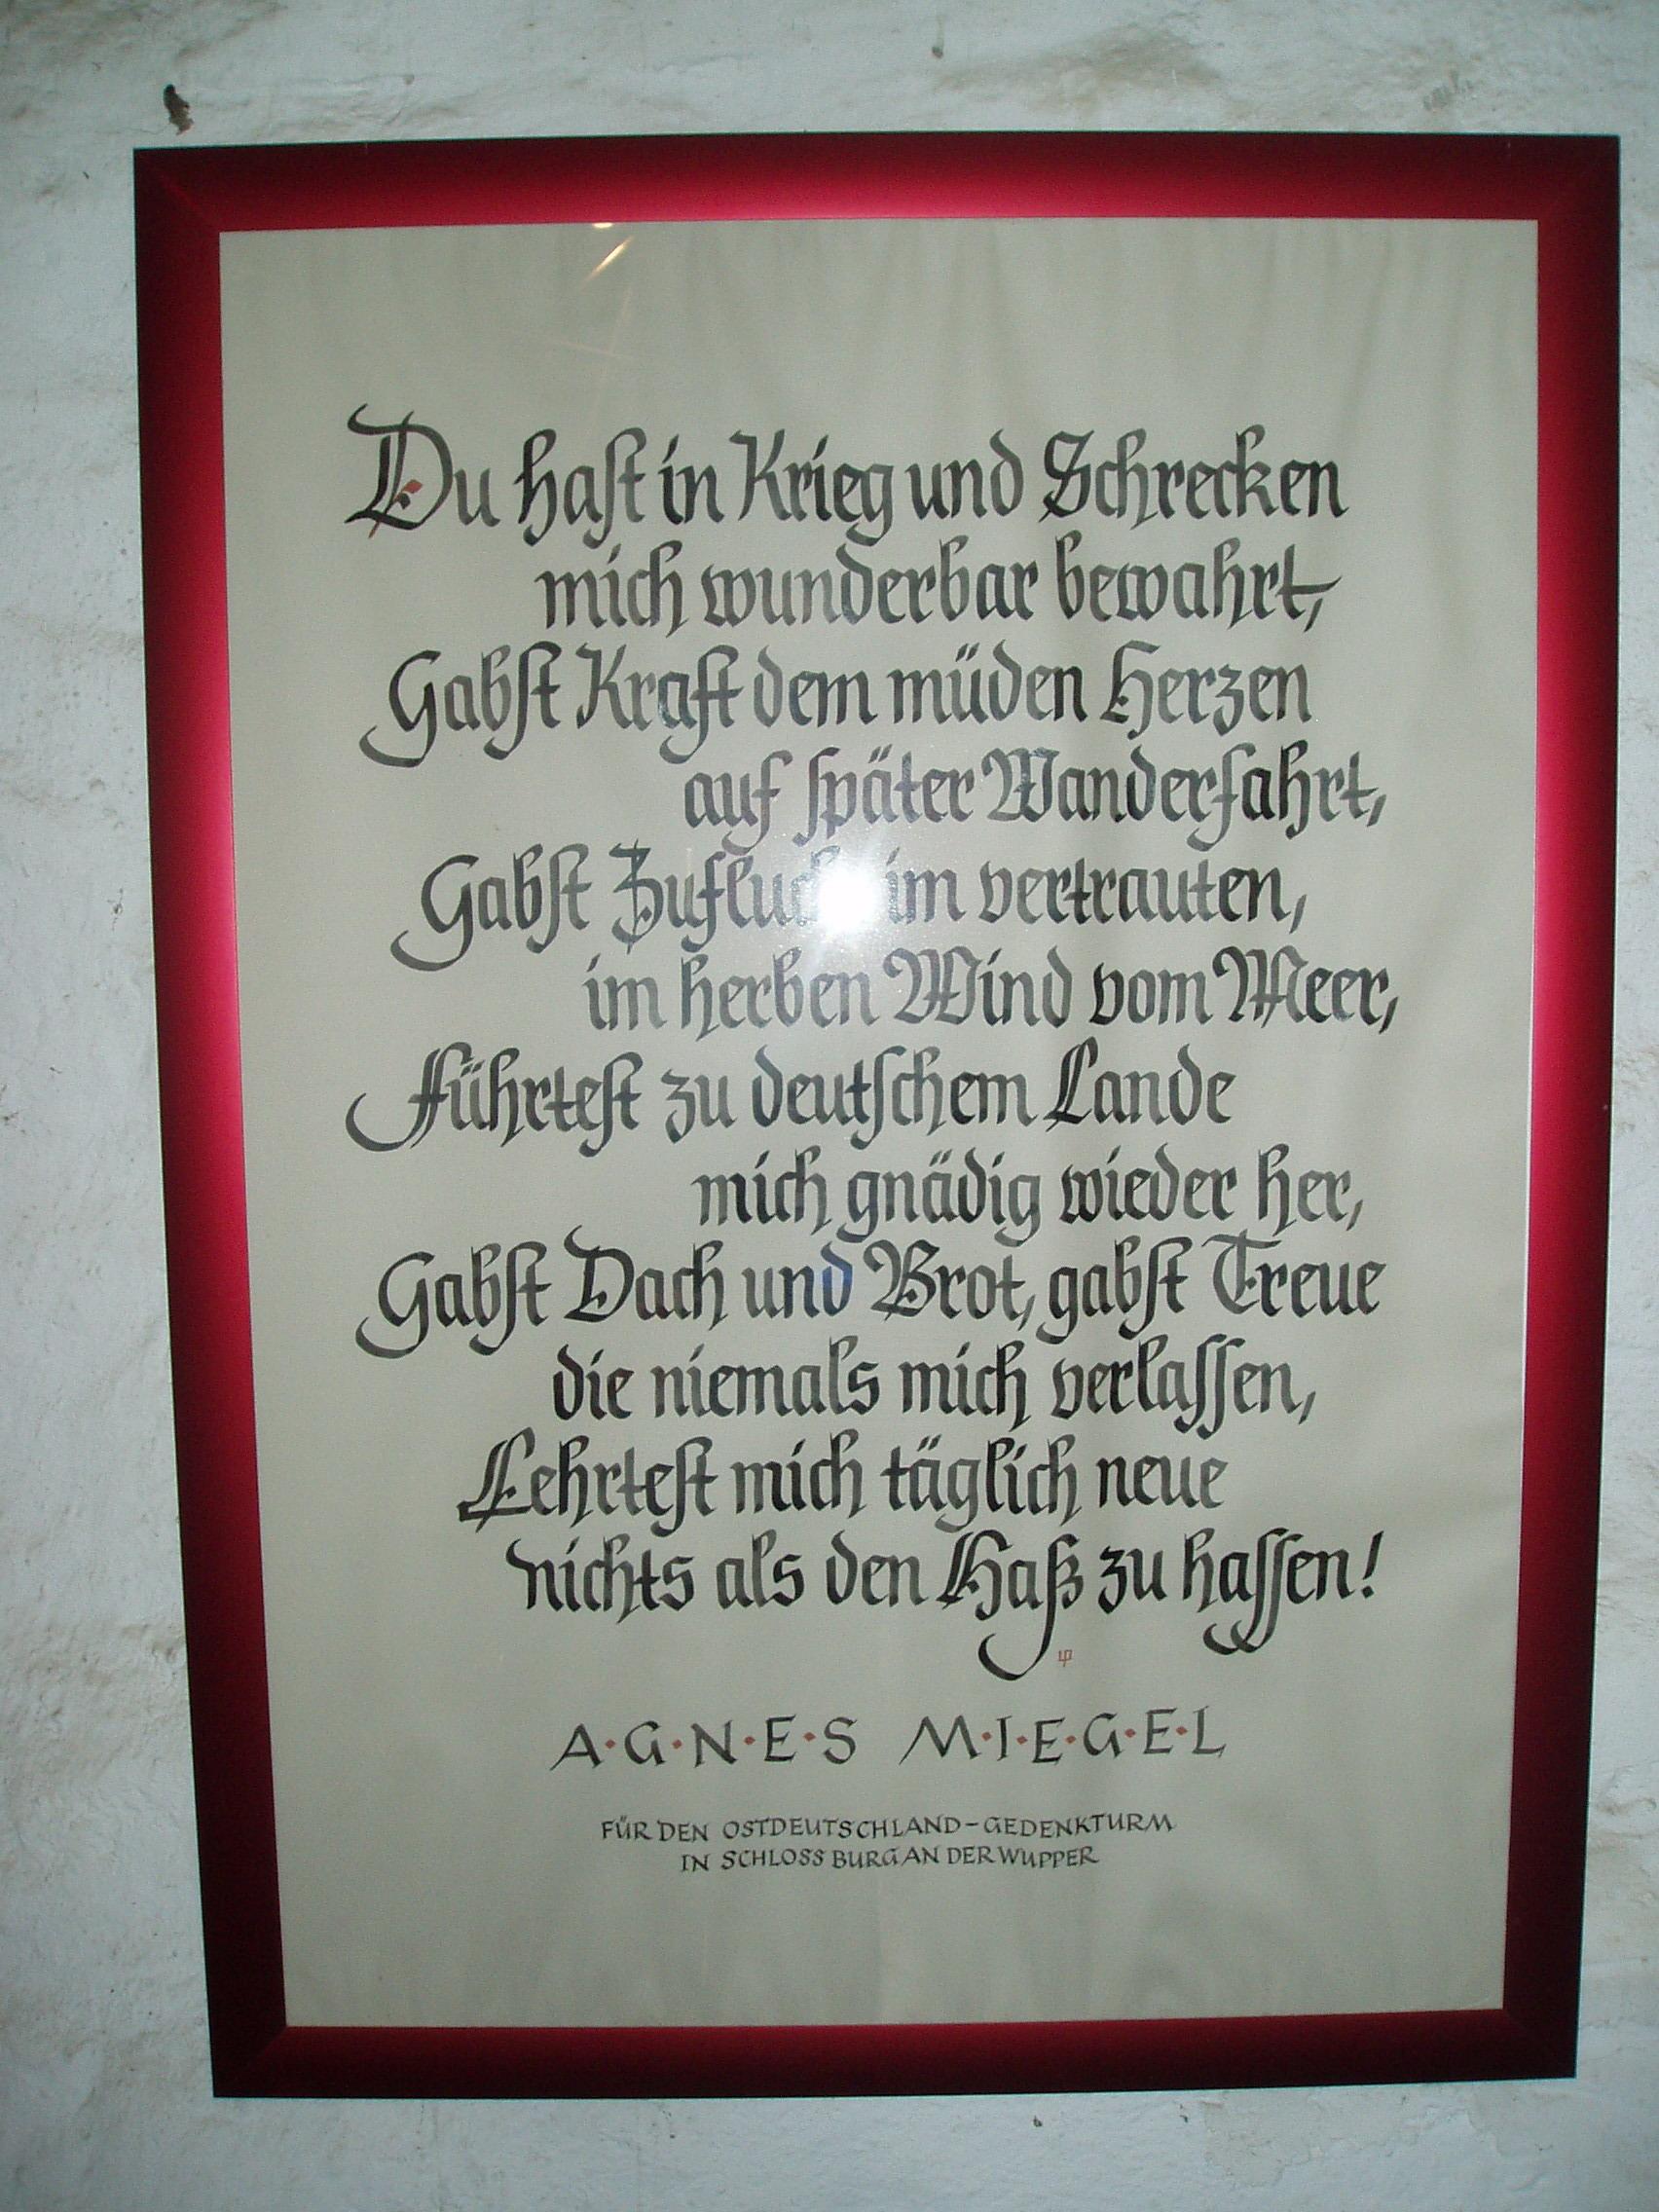 Du hast in Krieg und Schrecken
mich wunderbar bewahrt,
Gabst Kraft dem müden Herzen
auf später Wanderfahrt,
Gabst Zuflucht im vertrauten,
im herben Wind vom Meer,
Führtest zu deutschem Lande
mich gnädig wieder her,
Gabst Dach und Brot, gabst Treue
die niemals mich verlassen,
Lehrtest mich täglich neue
nichts als den Haß zu hassen!
A·G·N·E·S M·I·E·G·E·L
FÜR DEN OSTDEUTSCHLAND-GEDENKTURM
IN SCHLOSS BURG AN DER WUPPER